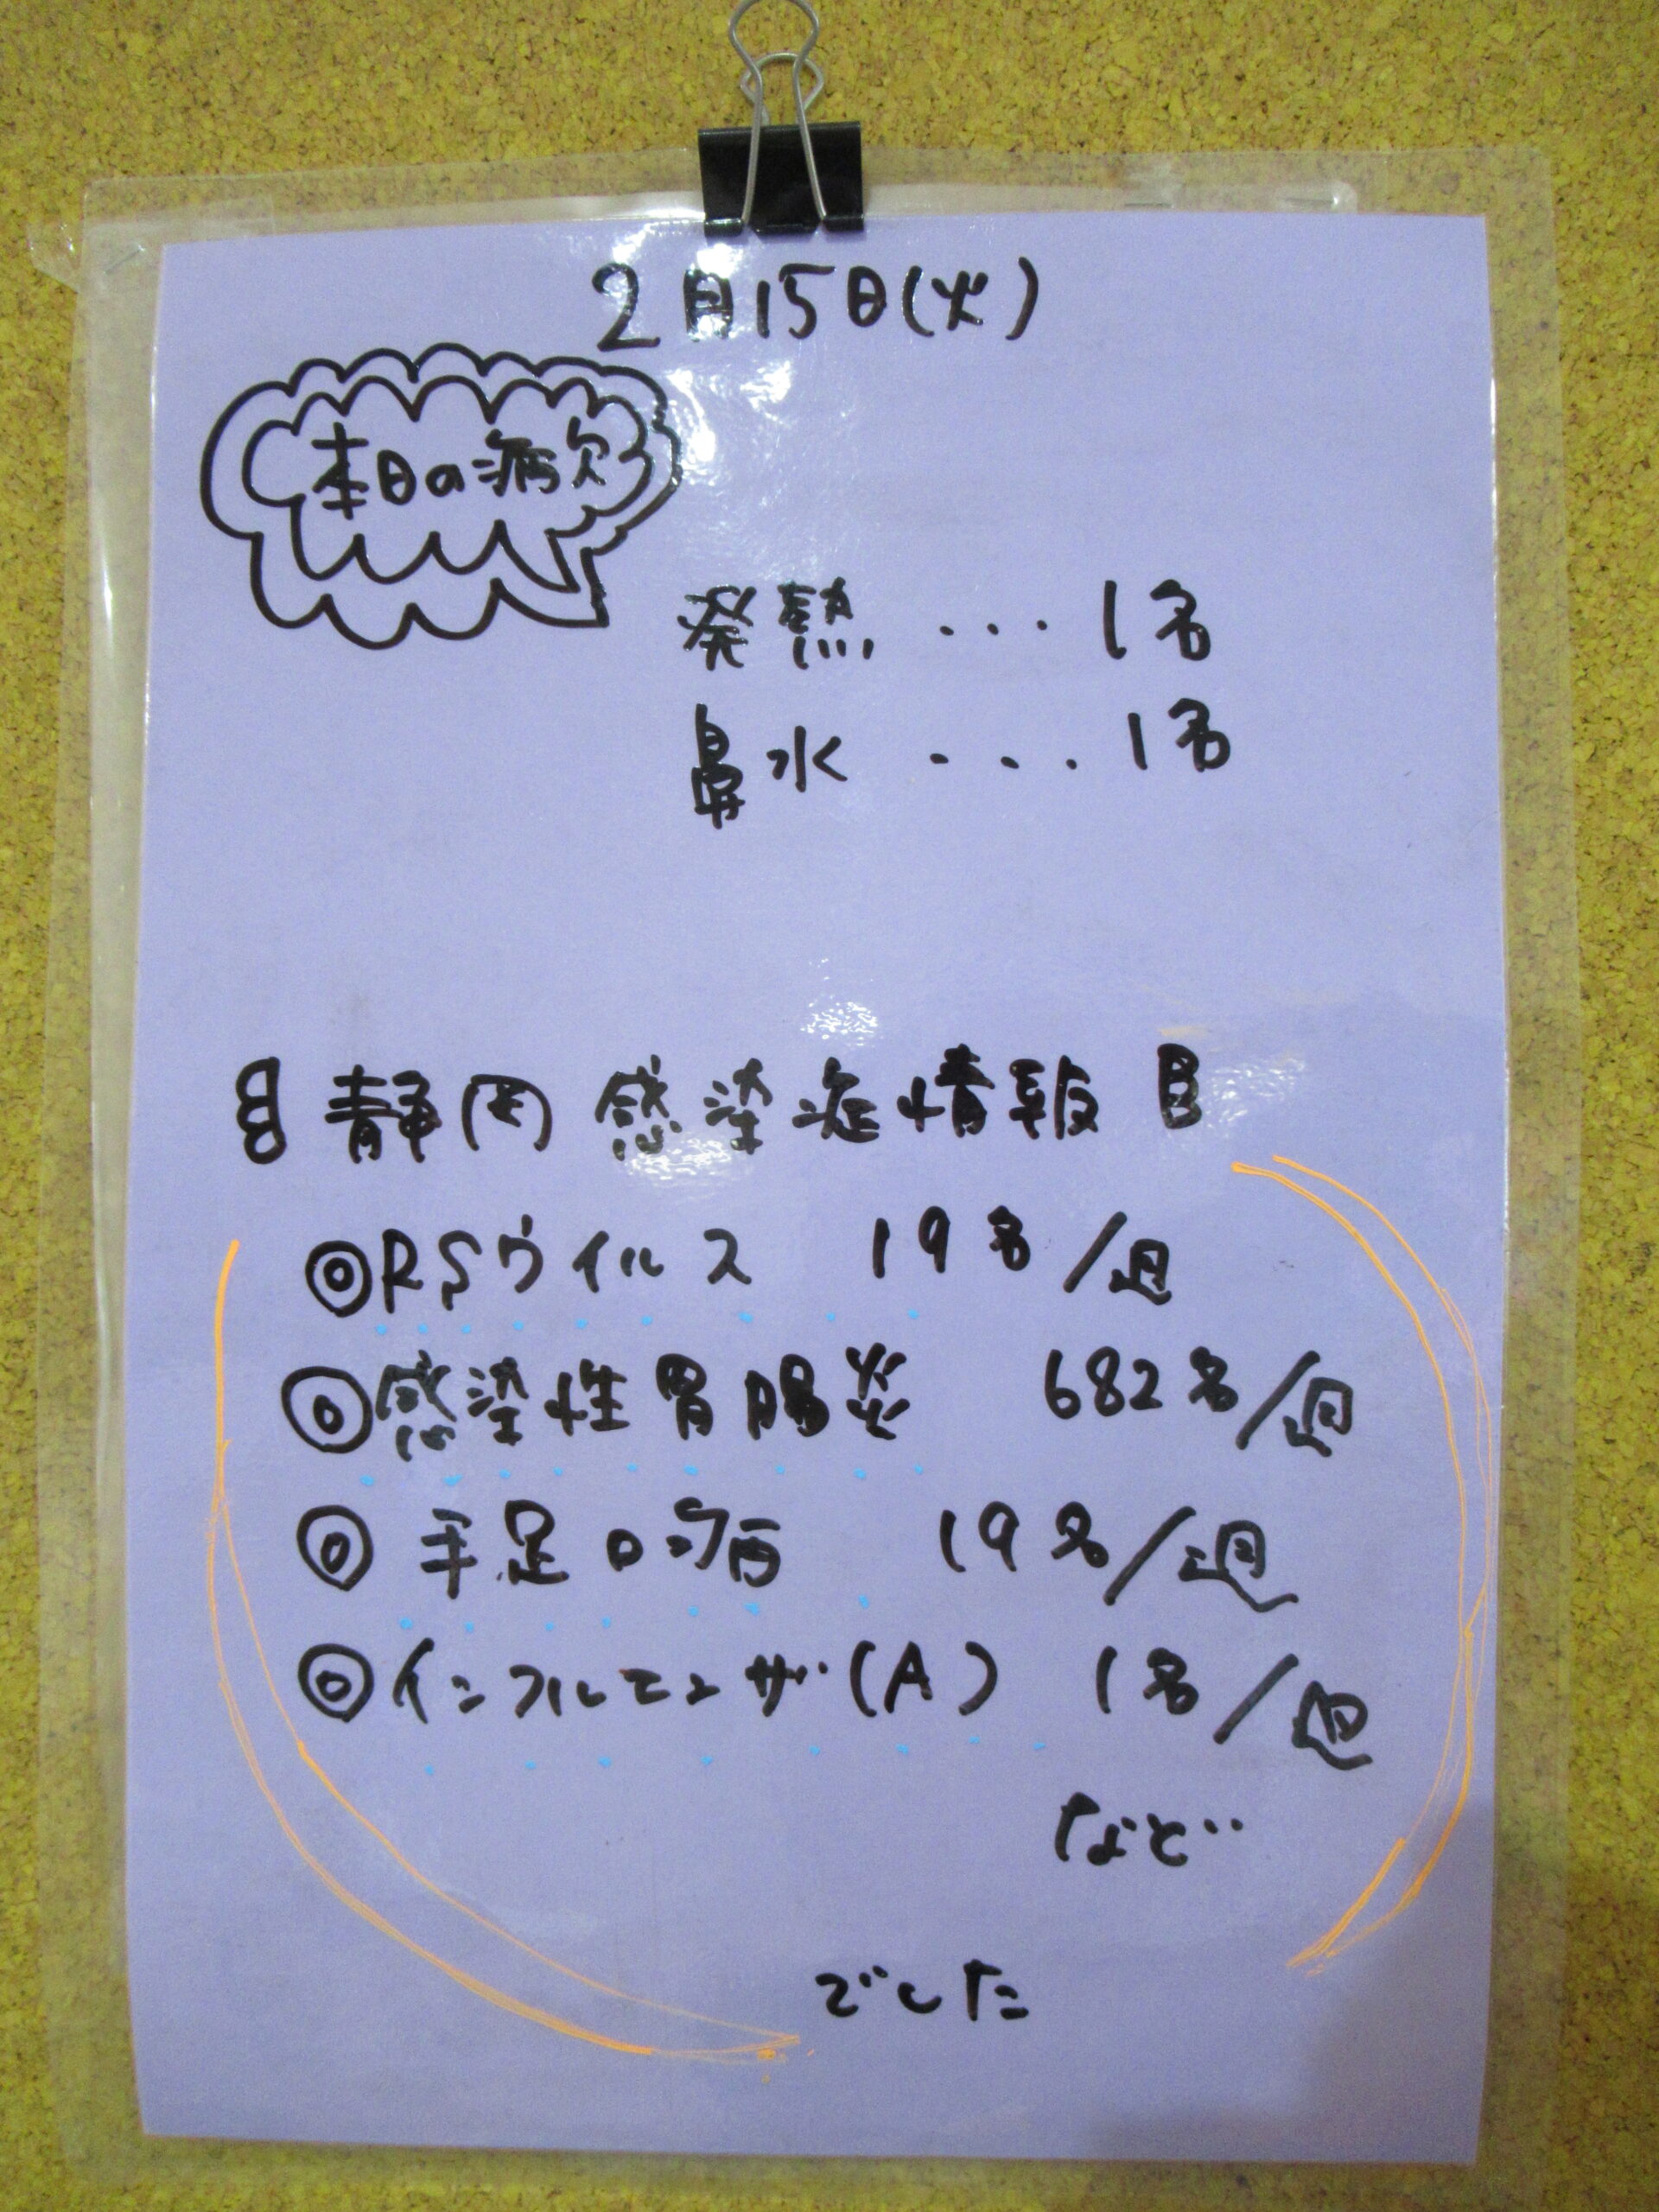 2月15日(火)
本日の病欠
発熱 ... 1名
鼻水 ... 1名
静岡 感染症情報
◎RSウイルス 19名/週
◎感染性胃腸炎 682名/週
◎手足口病 19名/週
◎インフルエンザ(A) 1名/週
など‥
でした